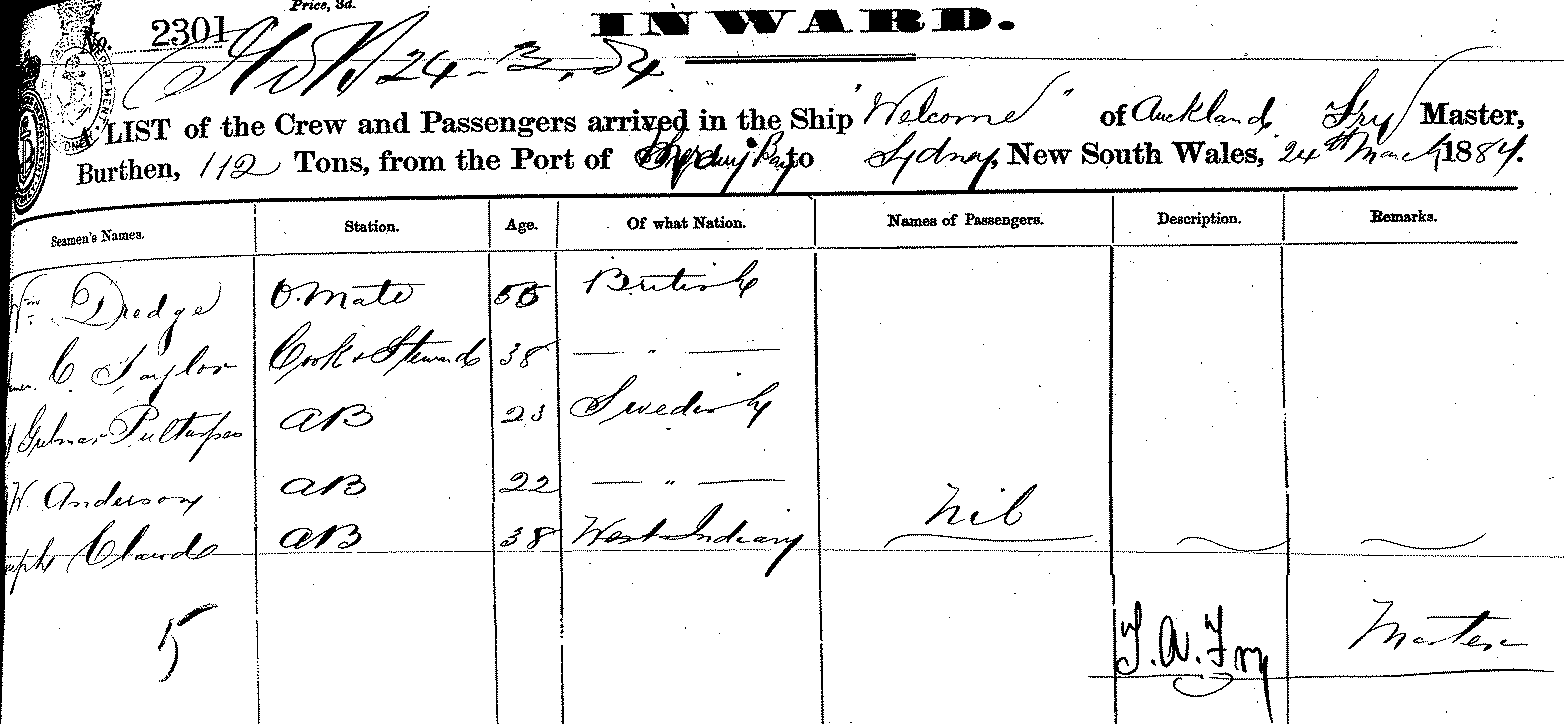 Price, 3d.
No. 2301 INWARD.
24-3-84
A LIST of the Crew and Passengers arrived in the Ship "Welcome" of Auckland Fry Master,
Burthen, 112 Tons, from the Port of to Sydney, New South Wales, 24th March 1884.
Seamen's Names. Station. Age. Of what Nation. Names of Passengers. Description. Remarks.
Wm Dredge O. Mate 55 British
C. Taylor Cook & Steward 38 — " —
AB 23 Swedish
W. Anderson AB 22 — " —
Claude AB 38 West Indian Nil
5
T. A. Fry Master